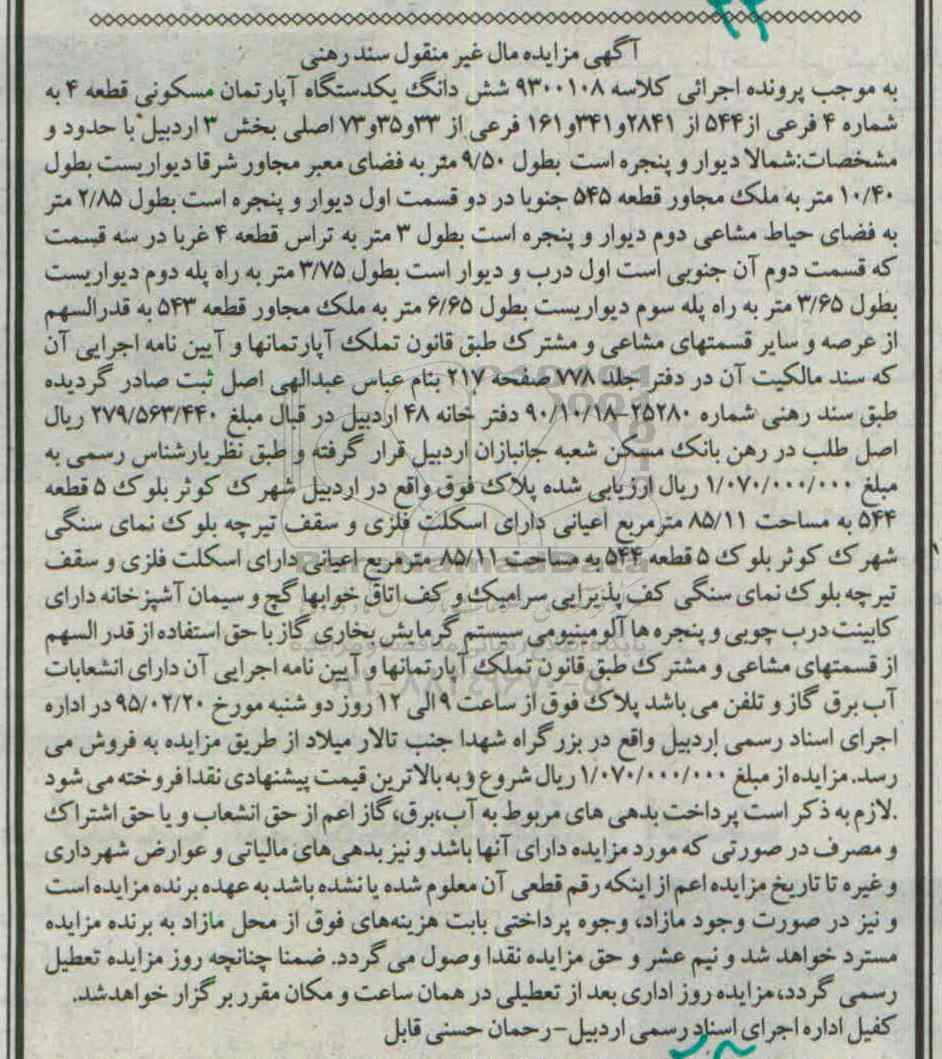 آگهی مزایده مال غیر منقول سند رهنی
به موجب پرونده اجرائی کلاسه ۹۳۰۰۱۰۸ شش دانگ یکدستگاه آپارتمان مسکونی قطعه ۴ به
شماره ۴ فرعی از ۵۴۴ از ۲۸۴۱و۳۴۱و۱۶۱ فرعی از ۳۳و۳۵و۷۳ اصلی بخش ۳ اردبیل با حدود و
مشخصات:شمالا دیوار و پنجره است بطول ۹/۵۰ متر به فضای معبر مجاور شرقا دیواریست بطول
۱۰/۴۰ متر به ملک مجاور قطعه ۵۴۵ جنوبا در دو قسمت اول دیوار و پنجره است بطول ۲/۸۵ متر
به فضای حیاط مشاعی دوم دیوار و پنجره است بطول ۳ متر به تراس قطعه ۴ غربا در سه قسمت
که قسمت دوم آن جنوبی است اول درب و دیوار است بطول ۳/۷۵ متر به راه پله دوم دیواریست
بطول ۳/۶۵ متر به راه پله سوم دیواریست بطول ۶/۶۵ متر به ملک مجاور قطعه ۵۴۳ به قدرالسهم
از عرصه و سایر قسمتهای مشاعی و مشترک طبق قانون تملک آپارتمانها و آیین نامه اجرایی آن
که سند مالکیت آن در دفتر جلد ۷۷۸ صفحه ۲۱۷ بنام عباس عبدالهی اصل ثبت صادر گردیده
طبق سند رهنی شماره ۲۵۲۸۰-۹۰/۱۰/۱۸ دفتر خانه ۴۸ اردبیل در قبال مبلغ ۲۷۹/۵۶۳/۴۴۰ ریال
اصل طلب در رهن بانک مسکن شعبه جانبازان اردبیل قرار گرفته و طبق نظریارشناس رسمی به
مبلغ ۱/۰۷۰/۰۰۰/۰۰۰ ریال ارزیابی شده پلاک فوق واقع در اردبیل شهرک کوثر بلوک ۵ قطعه
۵۴۴ به مساحت ۸۵/۱۱ مترمربع اعیانی دارای اسکلت فلزی و سقف تیرچه بلوک نمای سنگی
شهرک کوثر بلوک ۵ قطعه ۵۴۴ به مساحت ۸۵/۱۱ مترمربع اعیانی دارای اسکلت فلزی و سقف
تیرچه بلوک نمای سنگی کف پذیرایی سرامیک و کف اتاق خوابها گچ و سیمان آشپزخانه دارای
کابینت درب چوبی و پنجره ها آلومینیومی سیستم گرمایش بخاری گاز با حق استفاده از قدر السهم
از قسمتهای مشاعی و مشترک طبق قانون تملک آپارتمانها و آیین نامه اجرایی آن دارای انشعابات
آب برق گاز و تلفن می باشد پلاک فوق از ساعت ۹ الی ۱۲ روز دو شنبه مورخ ۹۵/۰۲/۲۰ در اداره
اجرای اسناد رسمی اردبیل واقع در بزرگراه شهدا جنب تالار میلاد از طریق مزایده به فروش می
رسد. مزایده از مبلغ ۱/۰۷۰/۰۰۰/۰۰۰ ریال شروع و به بالاترین قیمت پیشنهادی نقدا فروخته می شود
.لازم به ذکر است پرداخت بدهی های مربوط به آب،برق،گاز اعم از حق انشعاب و یا حق اشتراک
و مصرف در صورتی که مورد مزایده دارای آنها باشد و نیز بدهی های مالیاتی و عوارض شهرداری
و غیره تا تاریخ مزایده اعم از اینکه رقم قطعی آن معلوم شده یا نشده باشد به عهده برنده مزایده است
و نیز در صورت وجود مازاد، وجوه پرداختی بابت هزینه‌های فوق از محل مازاد به برنده مزایده
مسترد خواهد شد و نیم عشر و حق مزایده نقدا وصول می گردد. ضمنا چنانچه روز مزایده تعطیل
رسمی گردد،مزایده روز اداری بعد از تعطیلی در همان ساعت و مکان مقرر برگزار خواهدشد.
کفیل اداره اجرای اسناد رسمی اردبیل-رحمان حسنی قابل